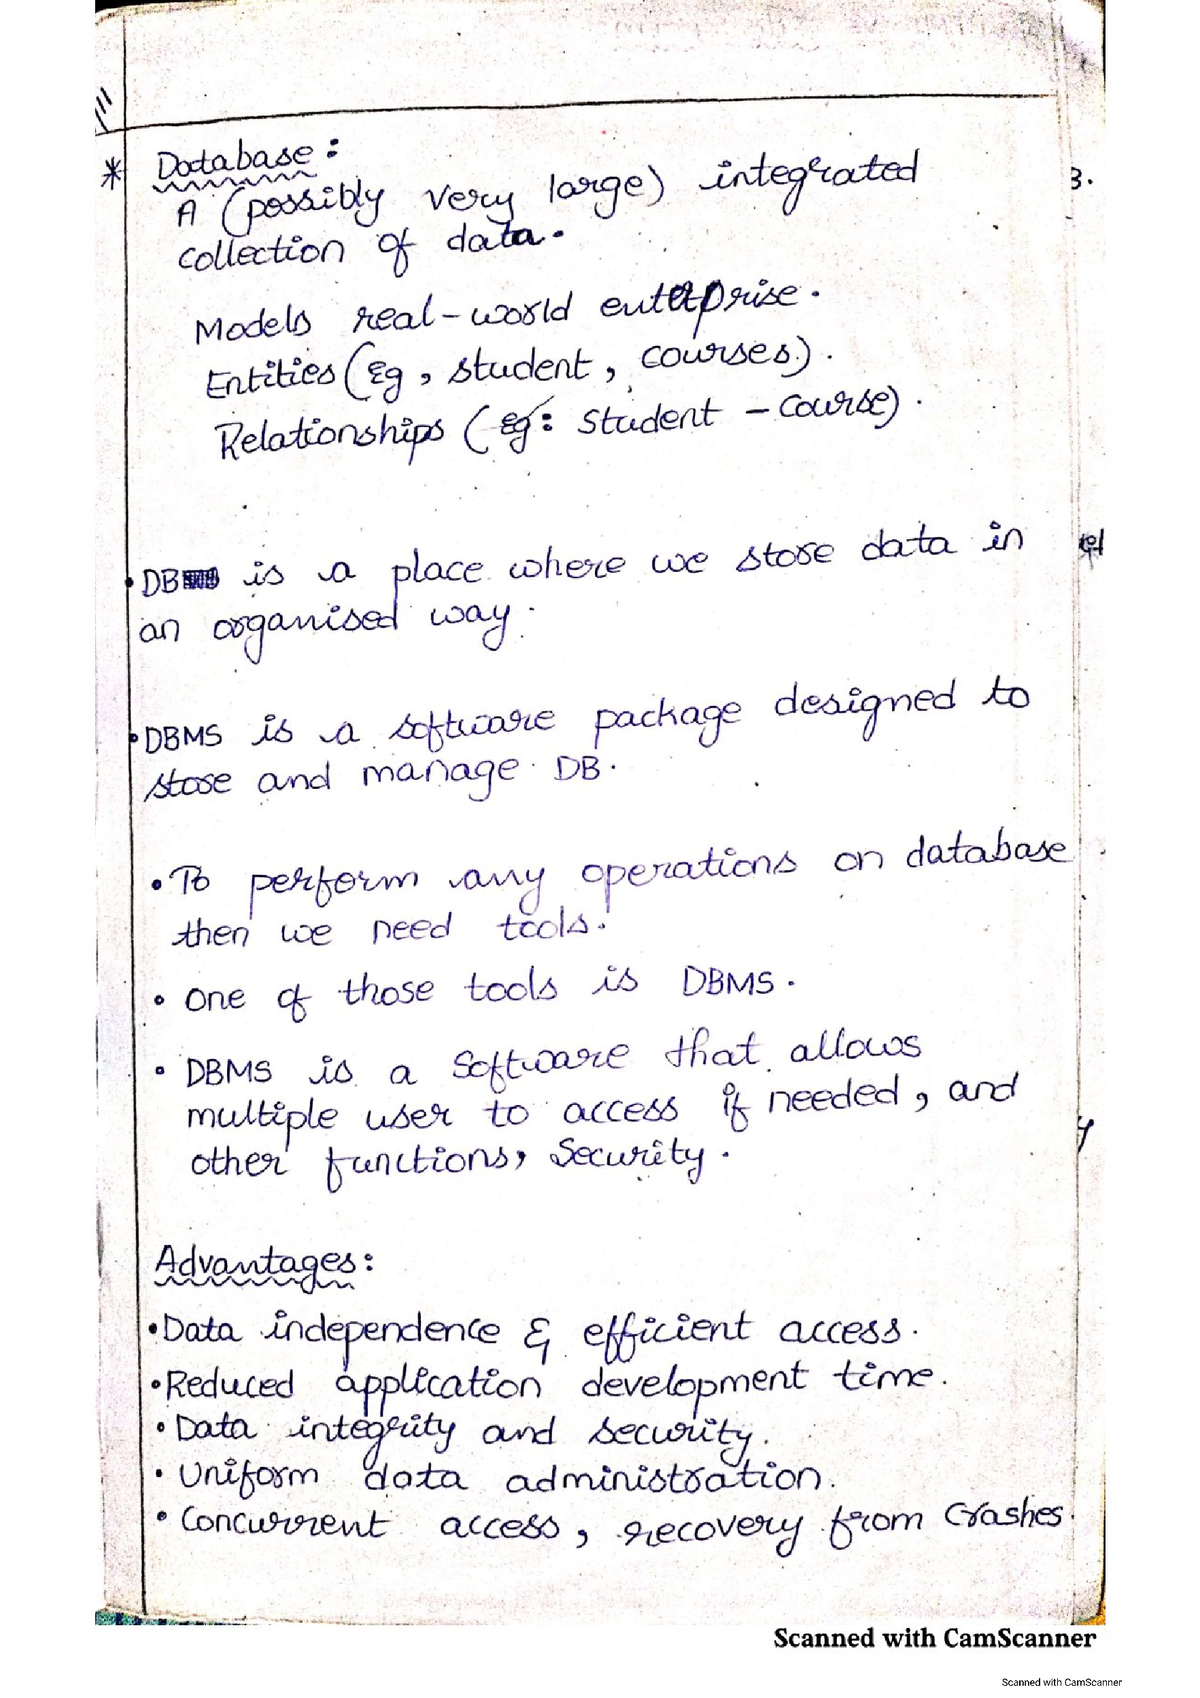 * Database :
A (possibly very large) integrated
collection of data.
Models real-world enterprise.
Entities (Eg, student, courses).
Relationships (Eg: Student - course).
• DB is a place where we store data in
an organised way.
• DBMS is a software package designed to
store and manage DB.
• To perform any operations on database
then we need tools.
• One of those tools is DBMS.
• DBMS is a Software that allows
multiple user to access if needed, and
other functions, Security.
Advantages:
• Data independence & efficient access.
• Reduced application development time.
• Data integrity and security.
• Uniform data administration.
• Concurrent access, recovery from Crashes.
3.
Scanned with CamScanner
Scanned with CamScanner